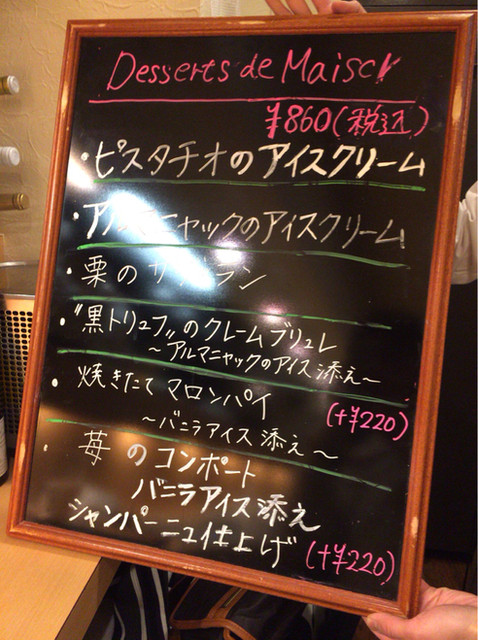 Desserts de Maison
¥860(税込)
・ピスタチオのアイスクリーム
・アルマニャックのアイスクリーム
・栗のサバラン
・"黒トリュフ"のクレームブリュレ
〜アルマニャックのアイス添え〜
・焼きたてマロンパイ
(+¥220)
〜バニラアイス添え〜
・苺のコンポート
バニラアイス添え
シャンパーニュ仕上げ (+¥220)